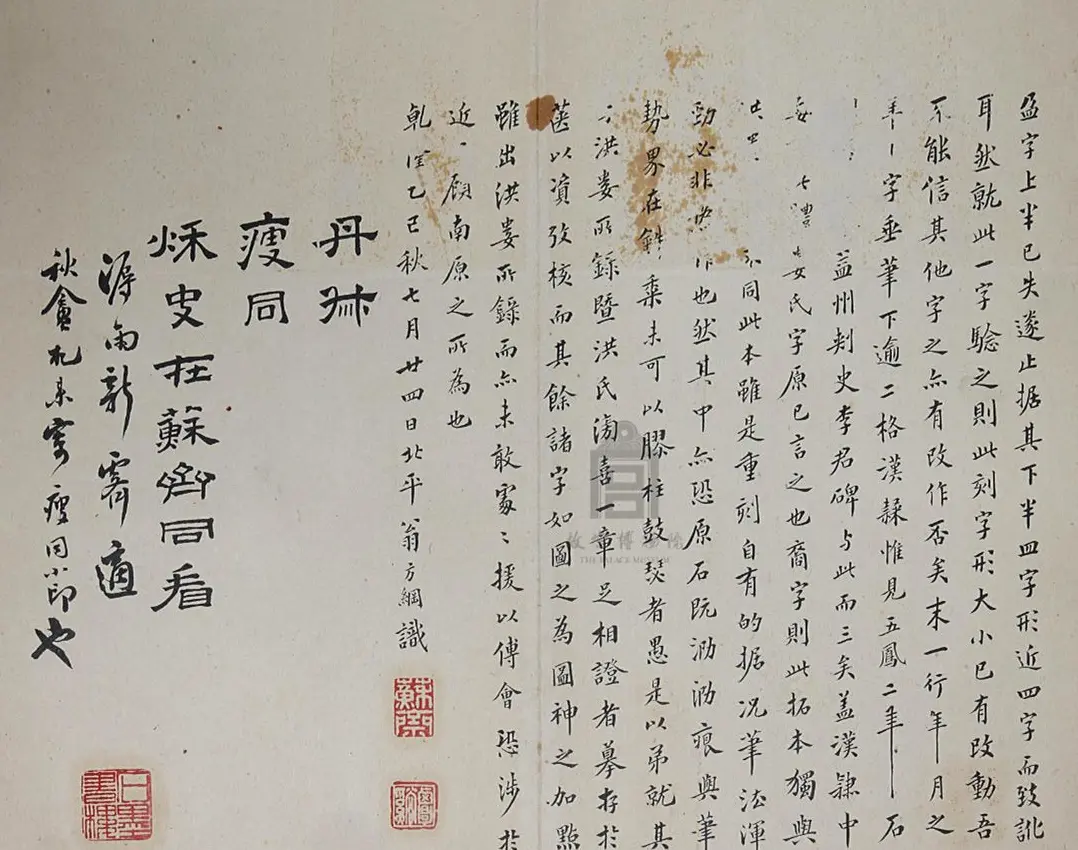 盈字上半已失遂止据其下半皿字形近四字而致訛
耳然就此一字驗之則此刻字形大小已有改動吾
不能信其他字之亦有改作否矣末一行年月之
年丨字垂筆下逾二格漢隸惟見五鳳二年石
益州刺史李君碑与此而三矣盖漢隸中
氏字原已言之也裔字則此拓本獨與
不同此本雖是重刻自有的据况筆法渾
勁必非 作也然其中亦恐原石既泐泐痕與筆
勢界在 黍未可以膠柱鼓瑟者愚是以弟就其
于洪婁所錄暨洪氏 喜一章足相證者摹存於
箧以資攷核而其餘諸字如圖之為圖神之加點
雖出洪婁所錄而亦未敢處處援以傅會恐涉於
近 顧南原之所為也
乾隆乙巳秋七月廿四日北平翁方綱識
丹叔
瘦同
穌史在蘇齋同看
得雨新霽適
秋盦札來寄瘦同小印也
蘇齋
石墨書樓
故宮博物院
THE PALACE MUSEUM